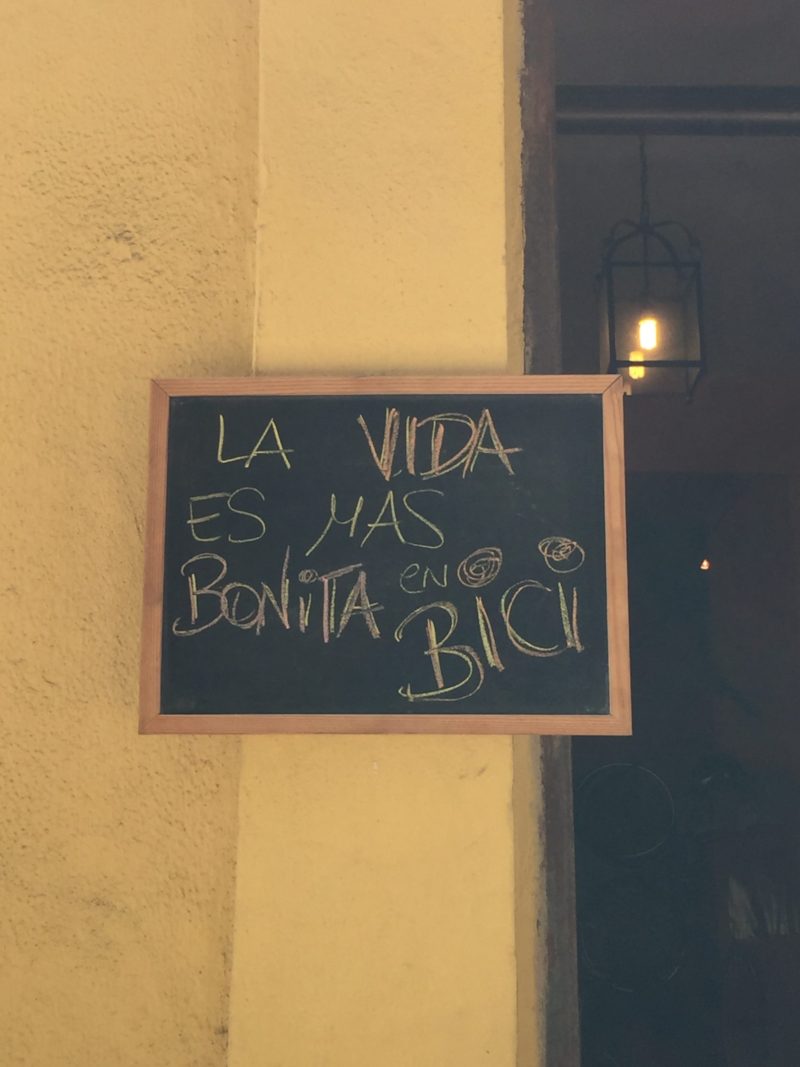 LA VIDA
ES MAS
BONiTA EN
BiCi